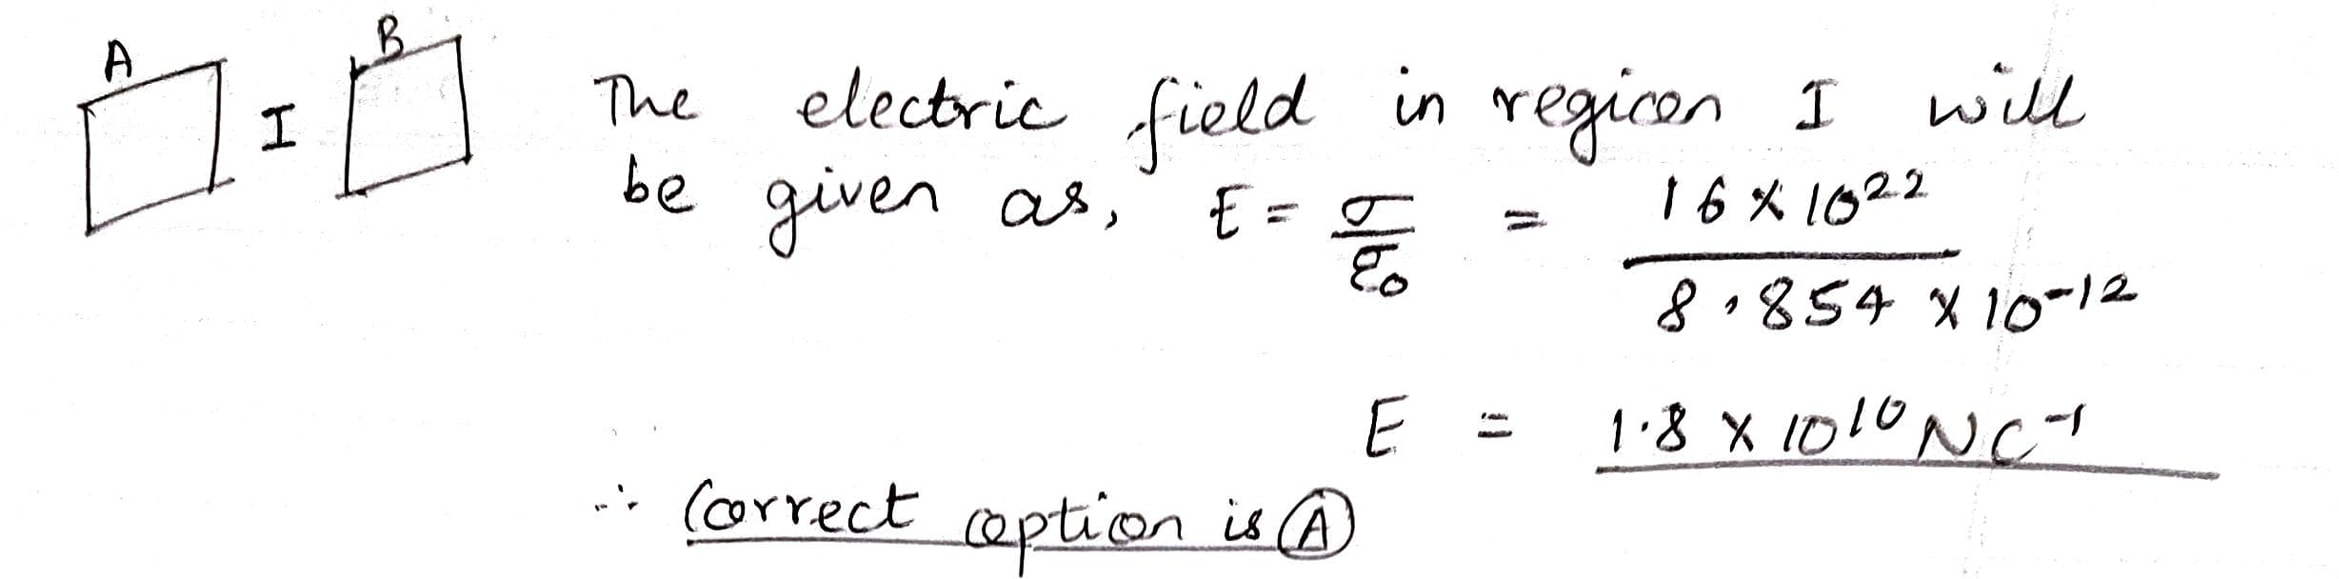 A I B
The electric field in region I will
be given as, E = σ/ε₀ = 16 × 10²² / 8.854 × 10⁻¹²
E = 1.8 × 10¹⁰ N C⁻¹
∴ Correct option is Ⓐ